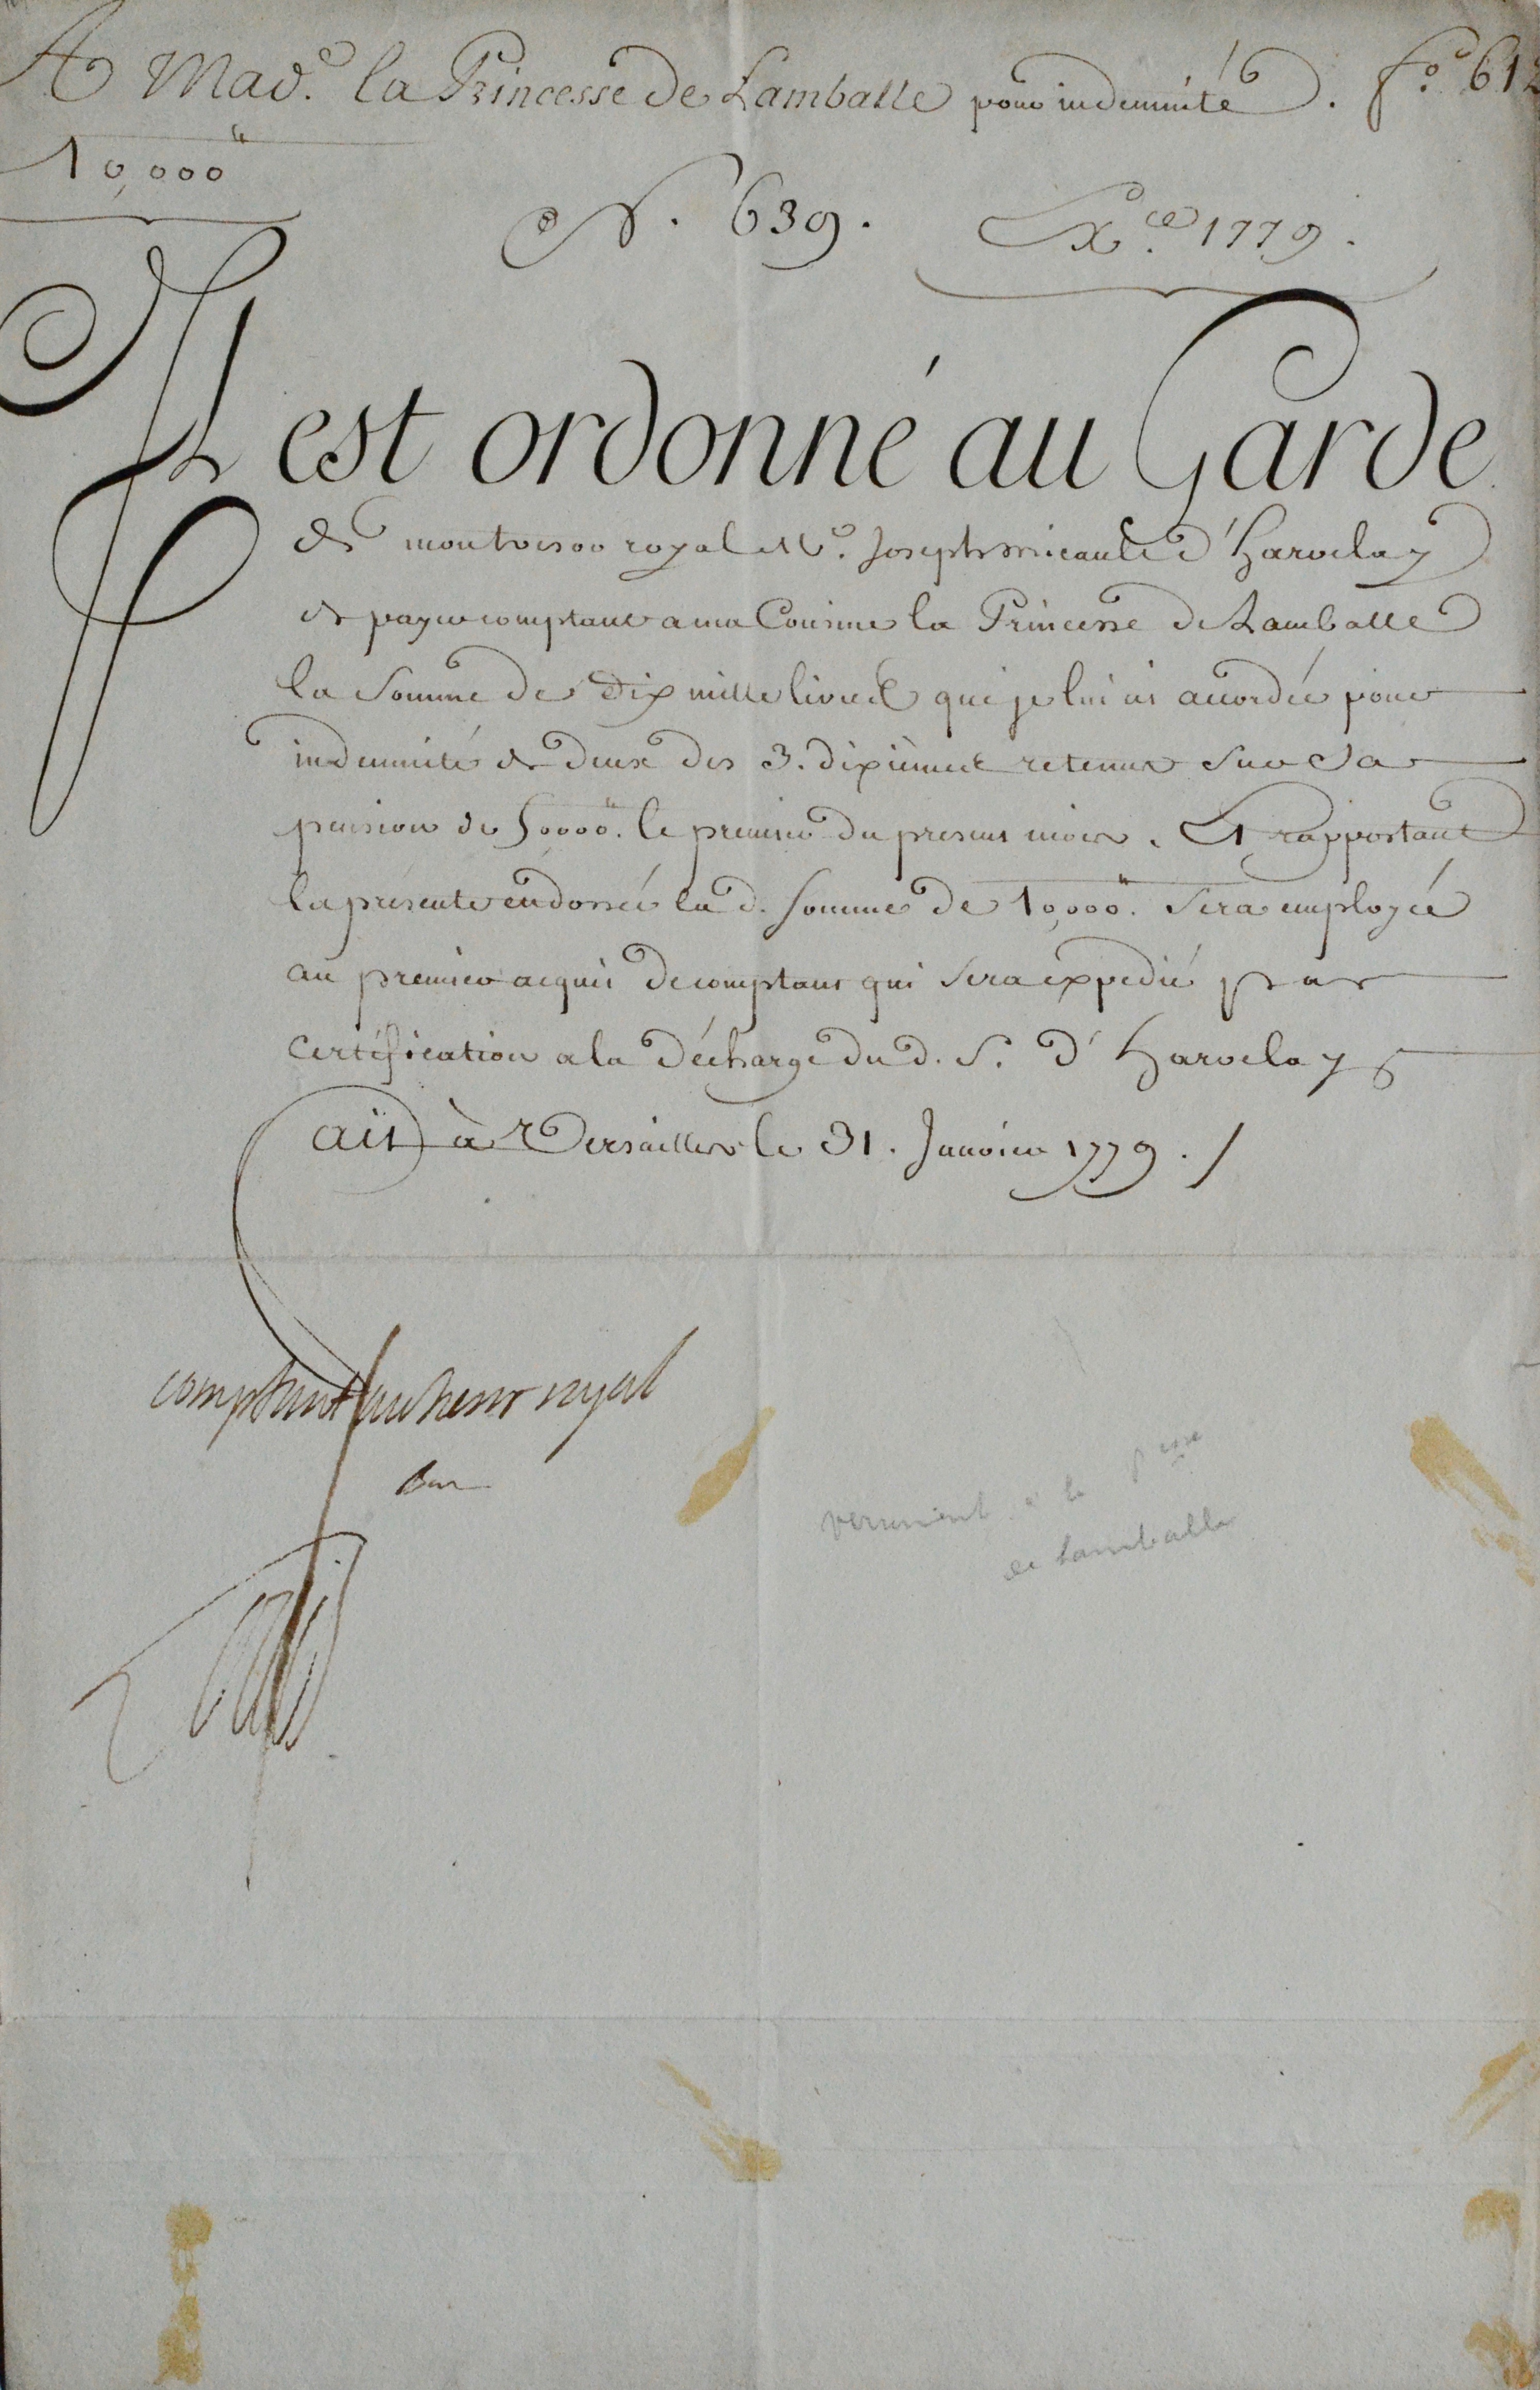 A Mad.e la Princesse de Lamballe pour indemnité. fo. 612
10,000lt
N. 639. Exce. 1779.
Il est ordonné au Garde
de mon tresor royal Me. Joseph micault d'harvelay
de payer comptant a ma Cousine la Princesse de Lamballe
la Somme de dix mille livres que je lui ai accordée pour
indemnité de deux des 3. dixièmes retenus sur sa
pension de 50000lt. le premier du present mois. Et rapportant
la présente endossée la d. somme de 10,000lt. Sera employée
au premier acquit de comptant qui sera expedié par
certification a la décharge du d. S. d'harvelay
Fait à Versailles le 31. Janvier 1779. /
comptant au tresor royal
bon
versement à la psse
de Lamballe